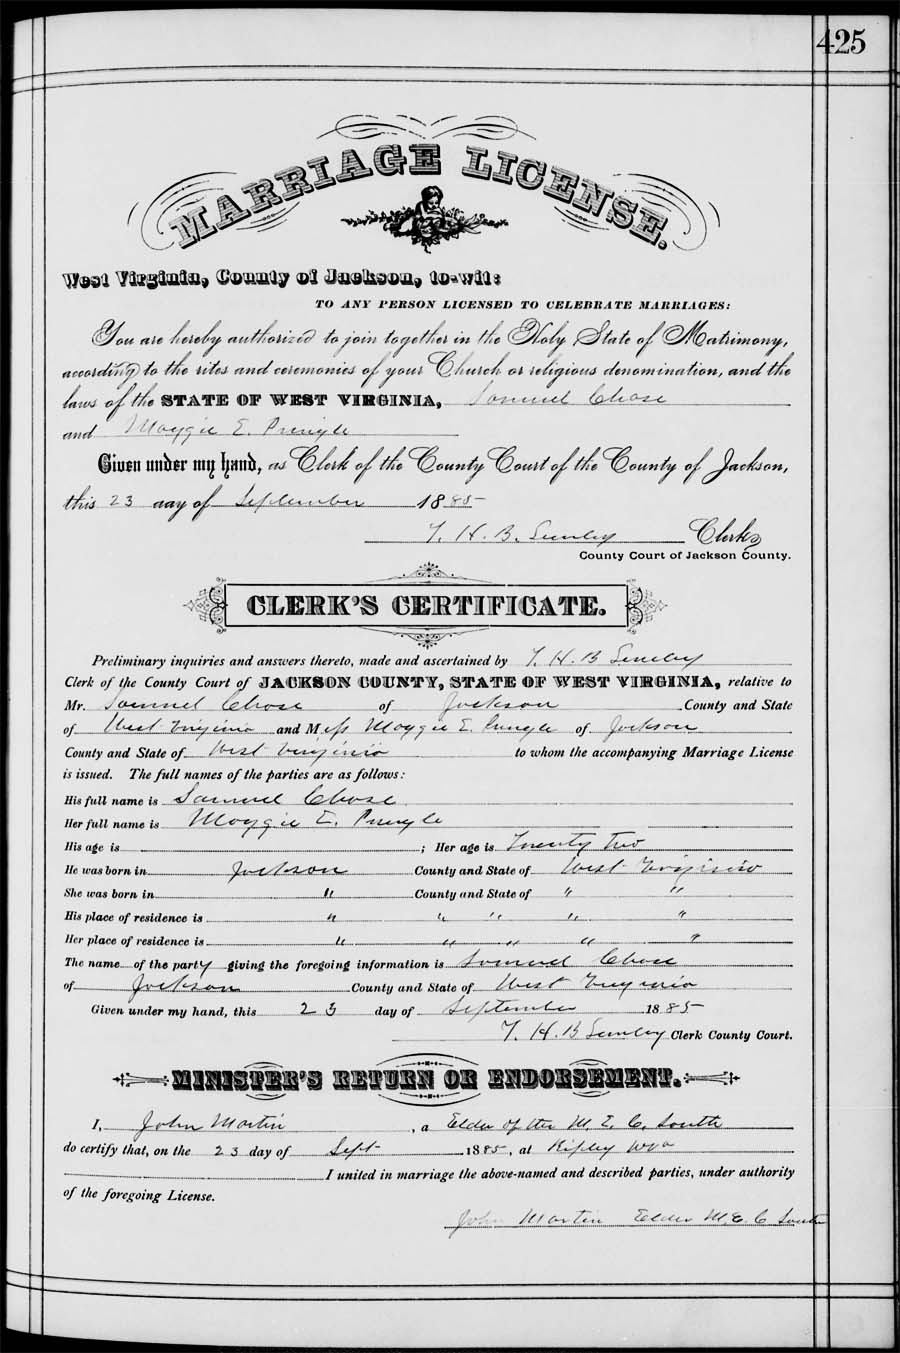 425
MARRIAGE LICENSE.
West Virginia, County of Jackson, to-wit:
TO ANY PERSON LICENSED TO CELEBRATE MARRIAGES:
You are hereby authorized to join together in the Holy State of Matrimony,
according to the rites and ceremonies of your Church or religious denomination, and the
laws of the STATE OF WEST VIRGINIA, Samuel Chase
and Maggie E. Pringle
Given under my hand, as Clerk of the County Court of the County of Jackson,
this 23 day of September 1885
T. H. B. Clerk
County Court of Jackson County.
CLERK'S CERTIFICATE.
Preliminary inquiries and answers thereto, made and ascertained by T. H. B
Clerk of the County Court of JACKSON COUNTY, STATE OF WEST VIRGINIA, relative to
Mr. Samuel Chase of Jackson County and State
of West Virginia and Miss Maggie E. Pringle of Jackson
County and State of West Virginia to whom the accompanying Marriage License
is issued. The full names of the parties are as follows:
His full name is Samuel Chase
Her full name is Maggie E. Pringle
His age is ; Her age is Twenty two
He was born in Jackson County and State of West Virginia
She was born in " County and State of " "
His place of residence is " " " " "
Her place of residence is " " " " "
The name of the party giving the foregoing information is Samuel Chase
of Jackson County and State of West Virginia
Given under my hand, this 23 day of September 1885
T. H. B Clerk County Court.
MINISTER'S RETURN OR ENDORSEMENT.
I, John Martin , a Elder of the M. E. C. South
do certify that, on the 23 day of Sept 1885, at Ripley WVa
I united in marriage the above-named and described parties, under authority
of the foregoing License.
John Martin Elder M E C South